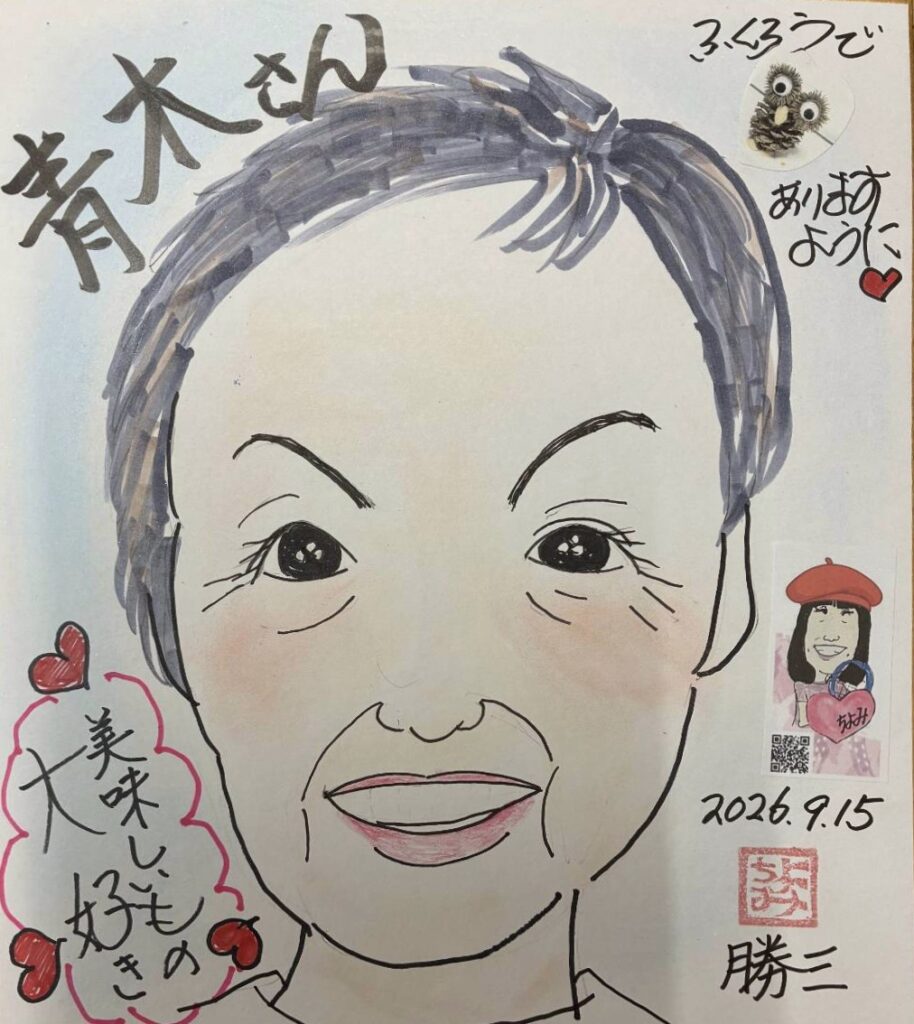 青木さん
ふくろうで
あります
ように
美味しいもの
大好き
ちよみ
2026.9.15
ちよみ
勝三